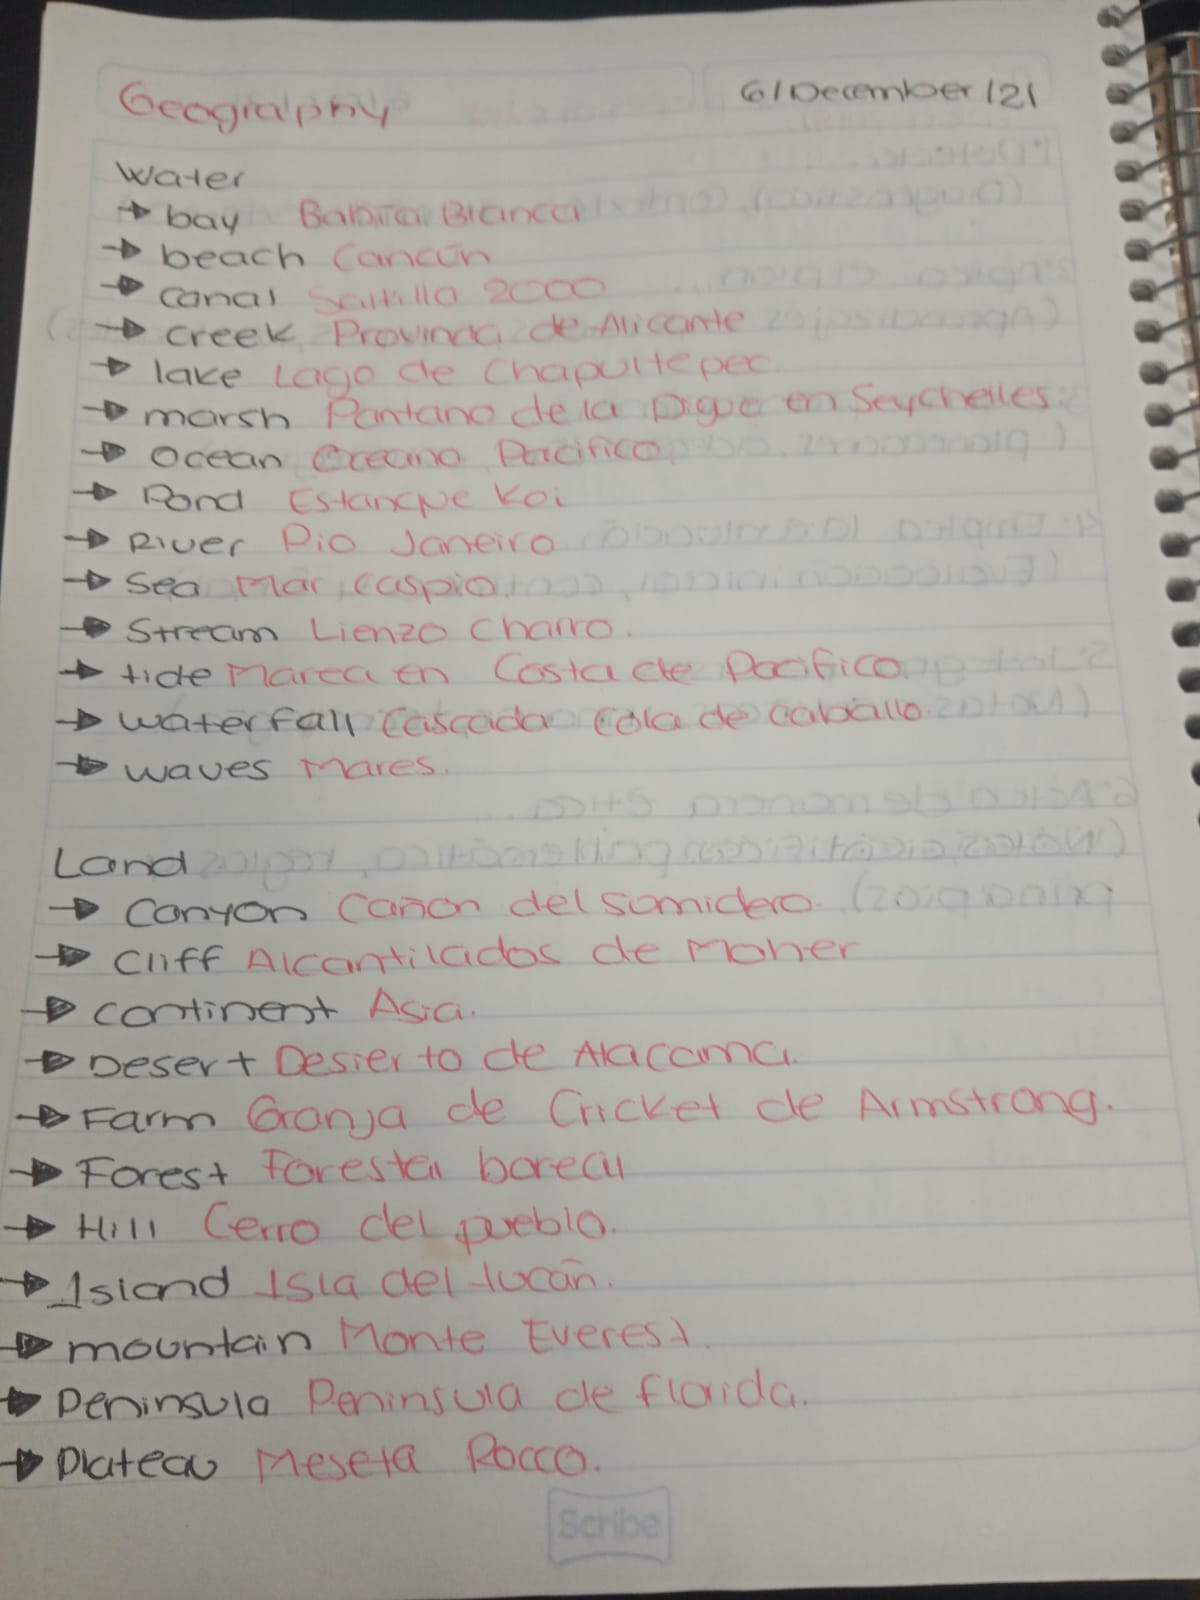 Geography
6/December/21
Water
→ bay Bahía Blanca
→ beach Cancún
→ canal Saltillo 2000
→ creek Provincia de Alicante
→ lake Lago de Chapultepec
→ marsh Pantano de la Digue en Seychelles
→ Ocean Oceano Pacifico
→ Pond Estanque Koi
→ River Rio Janeiro
→ Sea Mar Caspio.
→ Stream Lienzo Charro.
→ tide Marea en Costa de Pacifico.
→ waterfall Cascada Cola de caballo.
→ waves Mares.
Land
→ Canyon Cañon del Somidero.
→ Cliff Alcantilados de Moher
→ continent Asia.
→ Desert Desierto de Atacama.
→ Farm Granja de Cricket de Armstrong.
→ Forest Forestal boreal
→ Hill Cerro del pueblo.
→ Island Isla del tucán.
→ mountain Monte Everest.
→ Peninsula Peninsula de florida.
→ Plateau Meseta Rocco.
Scribe